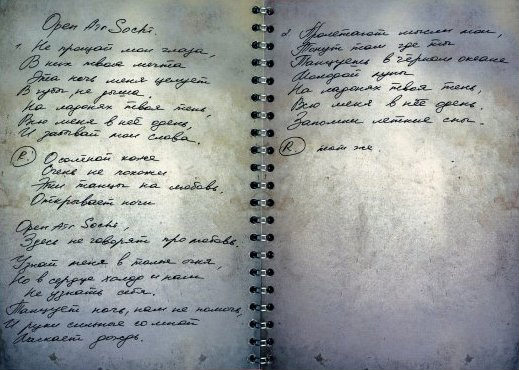 Open Air Sochi.
1. Не прощай мои глаза,
В них твоя мечта
Эта ночь меня целует
В губы не роша.
На ладонях твоя тень,
Всю меня в неё одень,
И забывай мои слова.
(R.) О солёной коже
Очень не похожи
Эти танцы на любовь.
Открывает ночи
Open Air Sochi,
Здесь не говорят про любовь.
Узнай меня в толпе огня,
Но в сердце холод и нам
Не узнать себя.
Танцует ночь, нам не помочь,
И руки сильные со мной
Ласкает дождь.
2. Пролетают мысли мои,
Тонут там где ты
Танцуешь в чёрном океане
Молодой луны
На ладонях твоя тень,
Всю меня в неё одень.
Запомни летние сны.
(R.) тот же.